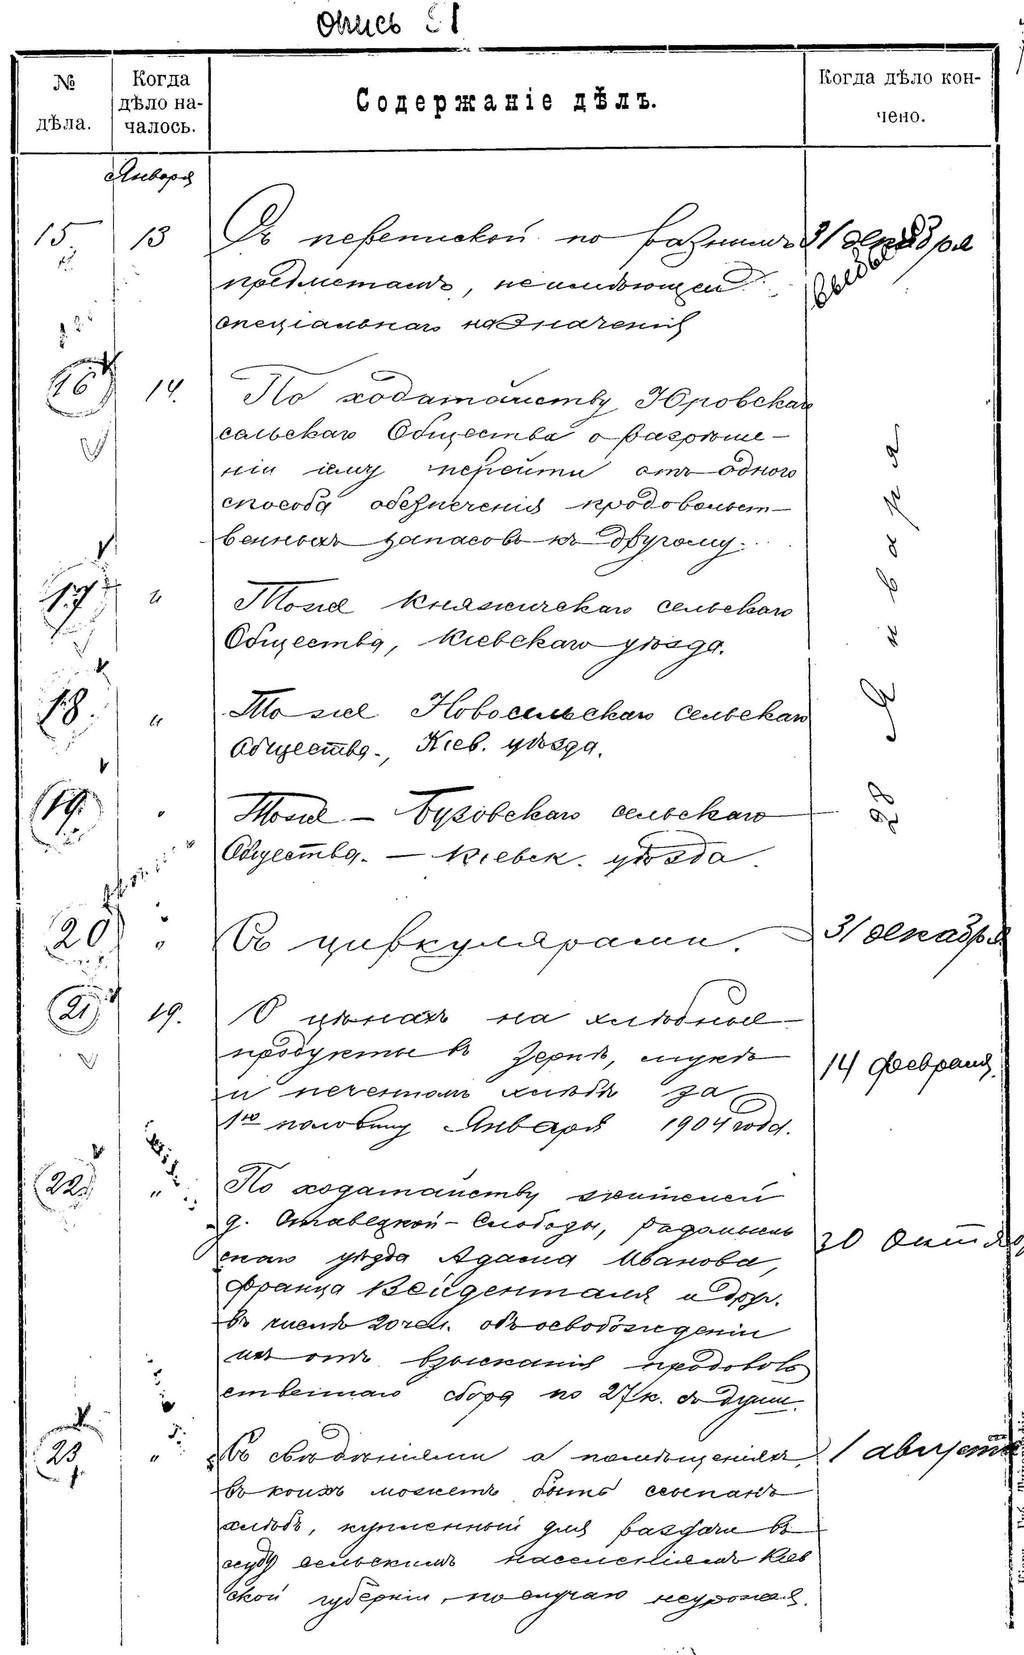 опись 21
№ дѣла.
Когда дѣло на-чалось.
Содержаніе дѣлъ.
Когда дѣло кон-чено.
Января
15
13
Съ перепиской по разнымъ
31 декабря
предметамъ, неимѣющей
спеціальнаго назначенія
16
14.
По ходатайству Юровскаго
сельскаго Общества о разрѣше-
ніи ему перейти отъ одного
способа обезпеченія продовольст-
венныхъ запасовъ къ другому.
28 Января
17
"
Тоже Княжичскаго сельскаго
Общества, Кіевскаго уѣзда.
18
"
Тоже Новосельскаго сельскаго
Общества, Кіев. уѣзда.
19
"
Тоже — Бузовскаго сельскаго
Общества. — Кіевск. уѣзда.
20
"
Съ циркулярами.
31 декабря
21
19.
О цѣнахъ на хлѣбные
продукты въ зернѣ, мукѣ
14 февраля
и печеномъ хлѣбѣ за
1ую половину Января 1904 года.
22
"
По ходатайству жителей
д. Ставецкой-Слободы, Радомысль
30 Октяб
скаго уѣзда Адама Иванова,
Франца Вейденталя и друг.
въ числѣ 20 чел. объ освобожденіи
ихъ отъ взысканія продоволь
ственнаго сбора по 27 к. съ души.
23
"
Съ свѣдѣніями о помѣщеніяхъ,
1 августа
въ коихъ можетъ быть ссыпанъ
хлѣбъ, купленный для раздачи въ
ссуду сельскимъ населеніямъ Кіев
ской губерніи, по случаю неурожая.